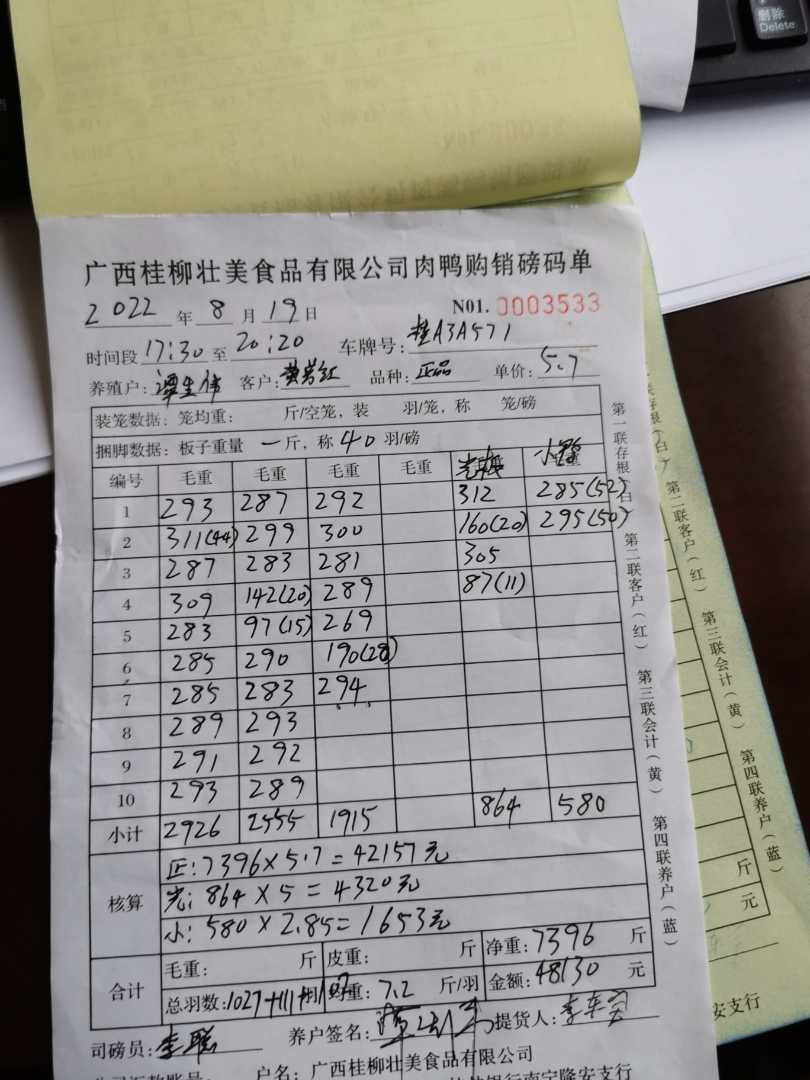 删除
Delete
广西桂柳壮美食品有限公司肉鸭购销磅码单
2022 年 8 月 19 日 N01. 0003533
时间段 17:30 至 20:20 车牌号: 桂A3A571
养殖户: 谭生伟 客户: 黄 红 品种: 正品 单价: 5.7
装笼数据: 笼均重: 斤/空笼, 装 羽/笼, 称 笼/磅
捆脚数据: 板子重量 一 斤, 称 40 羽/磅
编号 毛重 毛重 毛重 毛重 光 小
1 293 287 292 312 285(52)
2 311(44) 299 300 160(20) 295(50)
3 287 283 281 305
4 309 142(20) 289 87(11)
5 283 97(15) 269
6 285 290 190(28)
7 285 283 294
8 289 293
9 291 292
10 293 289
小计 2926 2555 1915 864 580
核算
正: 7396×5.7=42157元
光: 864×5=4320元
小: 580×2.85=1653元
合计
毛重: 斤 皮重: 斤 净重: 7396 斤
总羽数: 1027+111+102 均重: 7.2 斤/羽 金额: 48130 元
司磅员: 李 养户签名: 提货人: 李
户名: 广西桂柳壮美食品有限公司
银行南宁隆安支行
第一联存根(白) 第二联客户(红) 第三联会计(黄) 第四联养户(蓝)
联存根(白) 第二联客户(红) 第三联会计(黄) 第四联养户(蓝)
斤
元
安支行